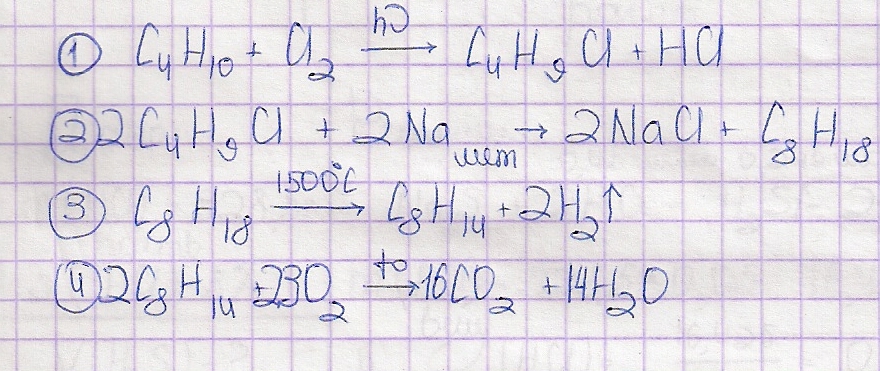 ① C₄H₁₀ + Cl₂ —hν→ C₄H₉Cl + HCl
② 2C₄H₉Cl + 2Na мет → 2NaCl + C₈H₁₈
③ C₈H₁₈ —1500°C→ C₈H₁₄ + 2H₂↑
④ 2C₈H₁₄ + 23O₂ —t°→ 16CO₂ + 14H₂O